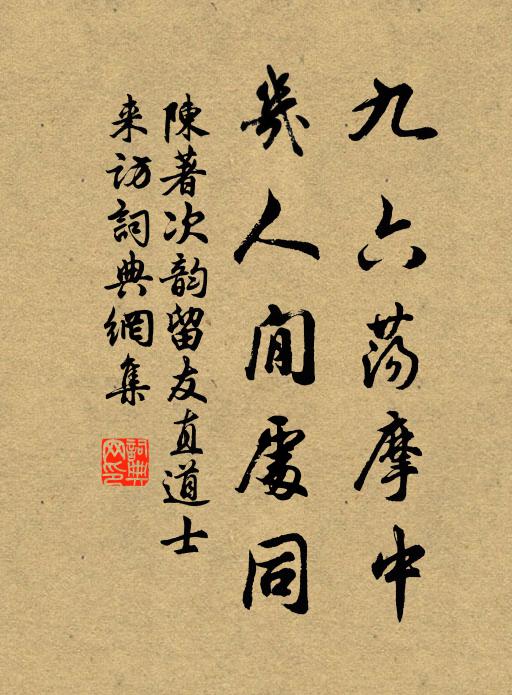 九六荡摩中
几人閒處同
陳著次韵留友直道士
来访詞典網集
詞典網印